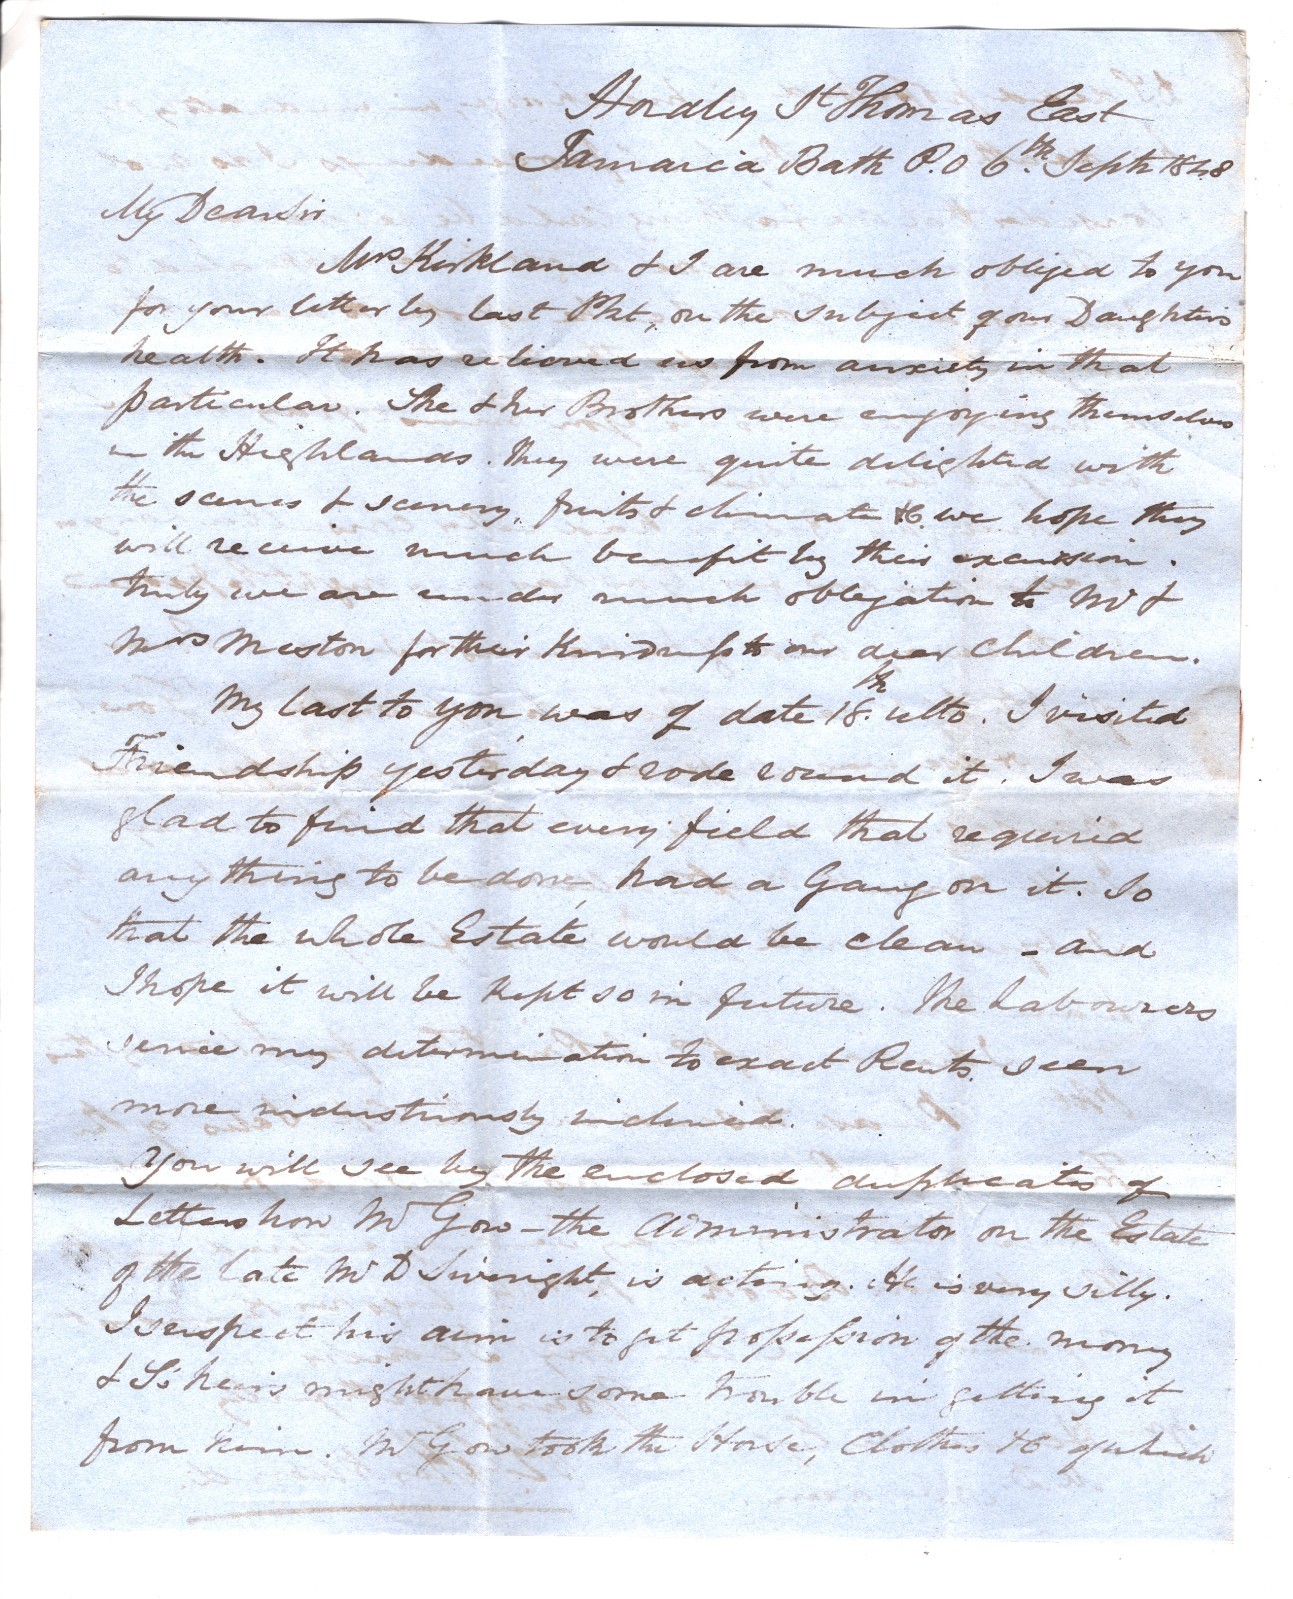 Hordley St Thomas East
Jamaica Bath P.O 6th Septr 1848
My Dear Sir
Mrs Kirkland & I are much obliged to you
for your letter by last Pkt, on the subject of our Daughters
health. It has relieved us from anxiety in that
particular. She & her Brothers were enjoying themselves
in the Highlands. They were quite delighted with
the scenes & scenery, fruits & climate &c. we hope they
will receive much benefit by their excursion.
truly we are under much obligation to Mr &
Mrs Meston for their kindness to our dear Children.
My last to you was of date 18th. ulto. I visited
Friendship yesterday & rode round it. I was
glad to find that every field that required
any thing to be done, had a Gang on it. So
that the whole Estate would be clean - and
I hope it will be kept so in future. The Labourers
since my determination to exact Rents. seem
more industriously inclined.
You will see by the enclosed duplicates of
Letters how Mr Gow - the Administrator on the Estate
of the late Mr D Sivright, is acting. He is very silly.
I suspect his aim is to get possession of the money
& S's heirs might have some trouble in getting it
from him. Mr Gow took the Horse, Clothes &c of which